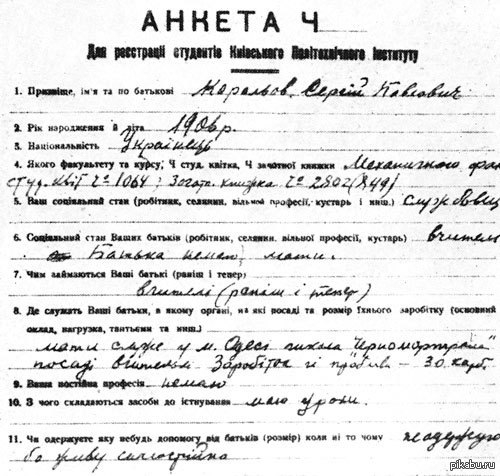 АНКЕТА Ч
Для реєстрації студентів Київського Політехнічного Інституту
1. Призвіще, ім'я та по батькові Корольов Сергій Павлович
2. Рік народження й літа 1906 р.
3. Національність Українець
4. Якого факультету та курсу, Ч студ. квітка, Ч зачотної книжки Механичного фак
студ. квіт Ч 1064; Зогота. книжка Ч 2802(849)
5. Ваш соціяльний стан (робітник, селянин, вільної професії, кустарь і инш.) службовець
6. Соціяльний стан Ваших батьків (робітник, селянин, вільної професії, кустарь) вчитель
Батька немаю, мати.
7. Чим займаються Ваші батькі (раніш і тепер)
вчителі (раніш і тепер)
8. Де служать Ваші батьки, в якому органі, на які посаді та розмір їхнього заробітку (основний
оклад, нагрузка, тантьєми та инш.)
мати служе у м. Одесі школа "Черномортрана"
посаді вчительки Заробіток її - 30 карб.
9. Ваша постійна професія немаю
10. З чого складаються засоби до існування маю уроки.
11. Чи одержуєте яку небудь допомогу від батьків (розмір) коля ні то чому неодержую
бо живу самостійно
pikabu.ru